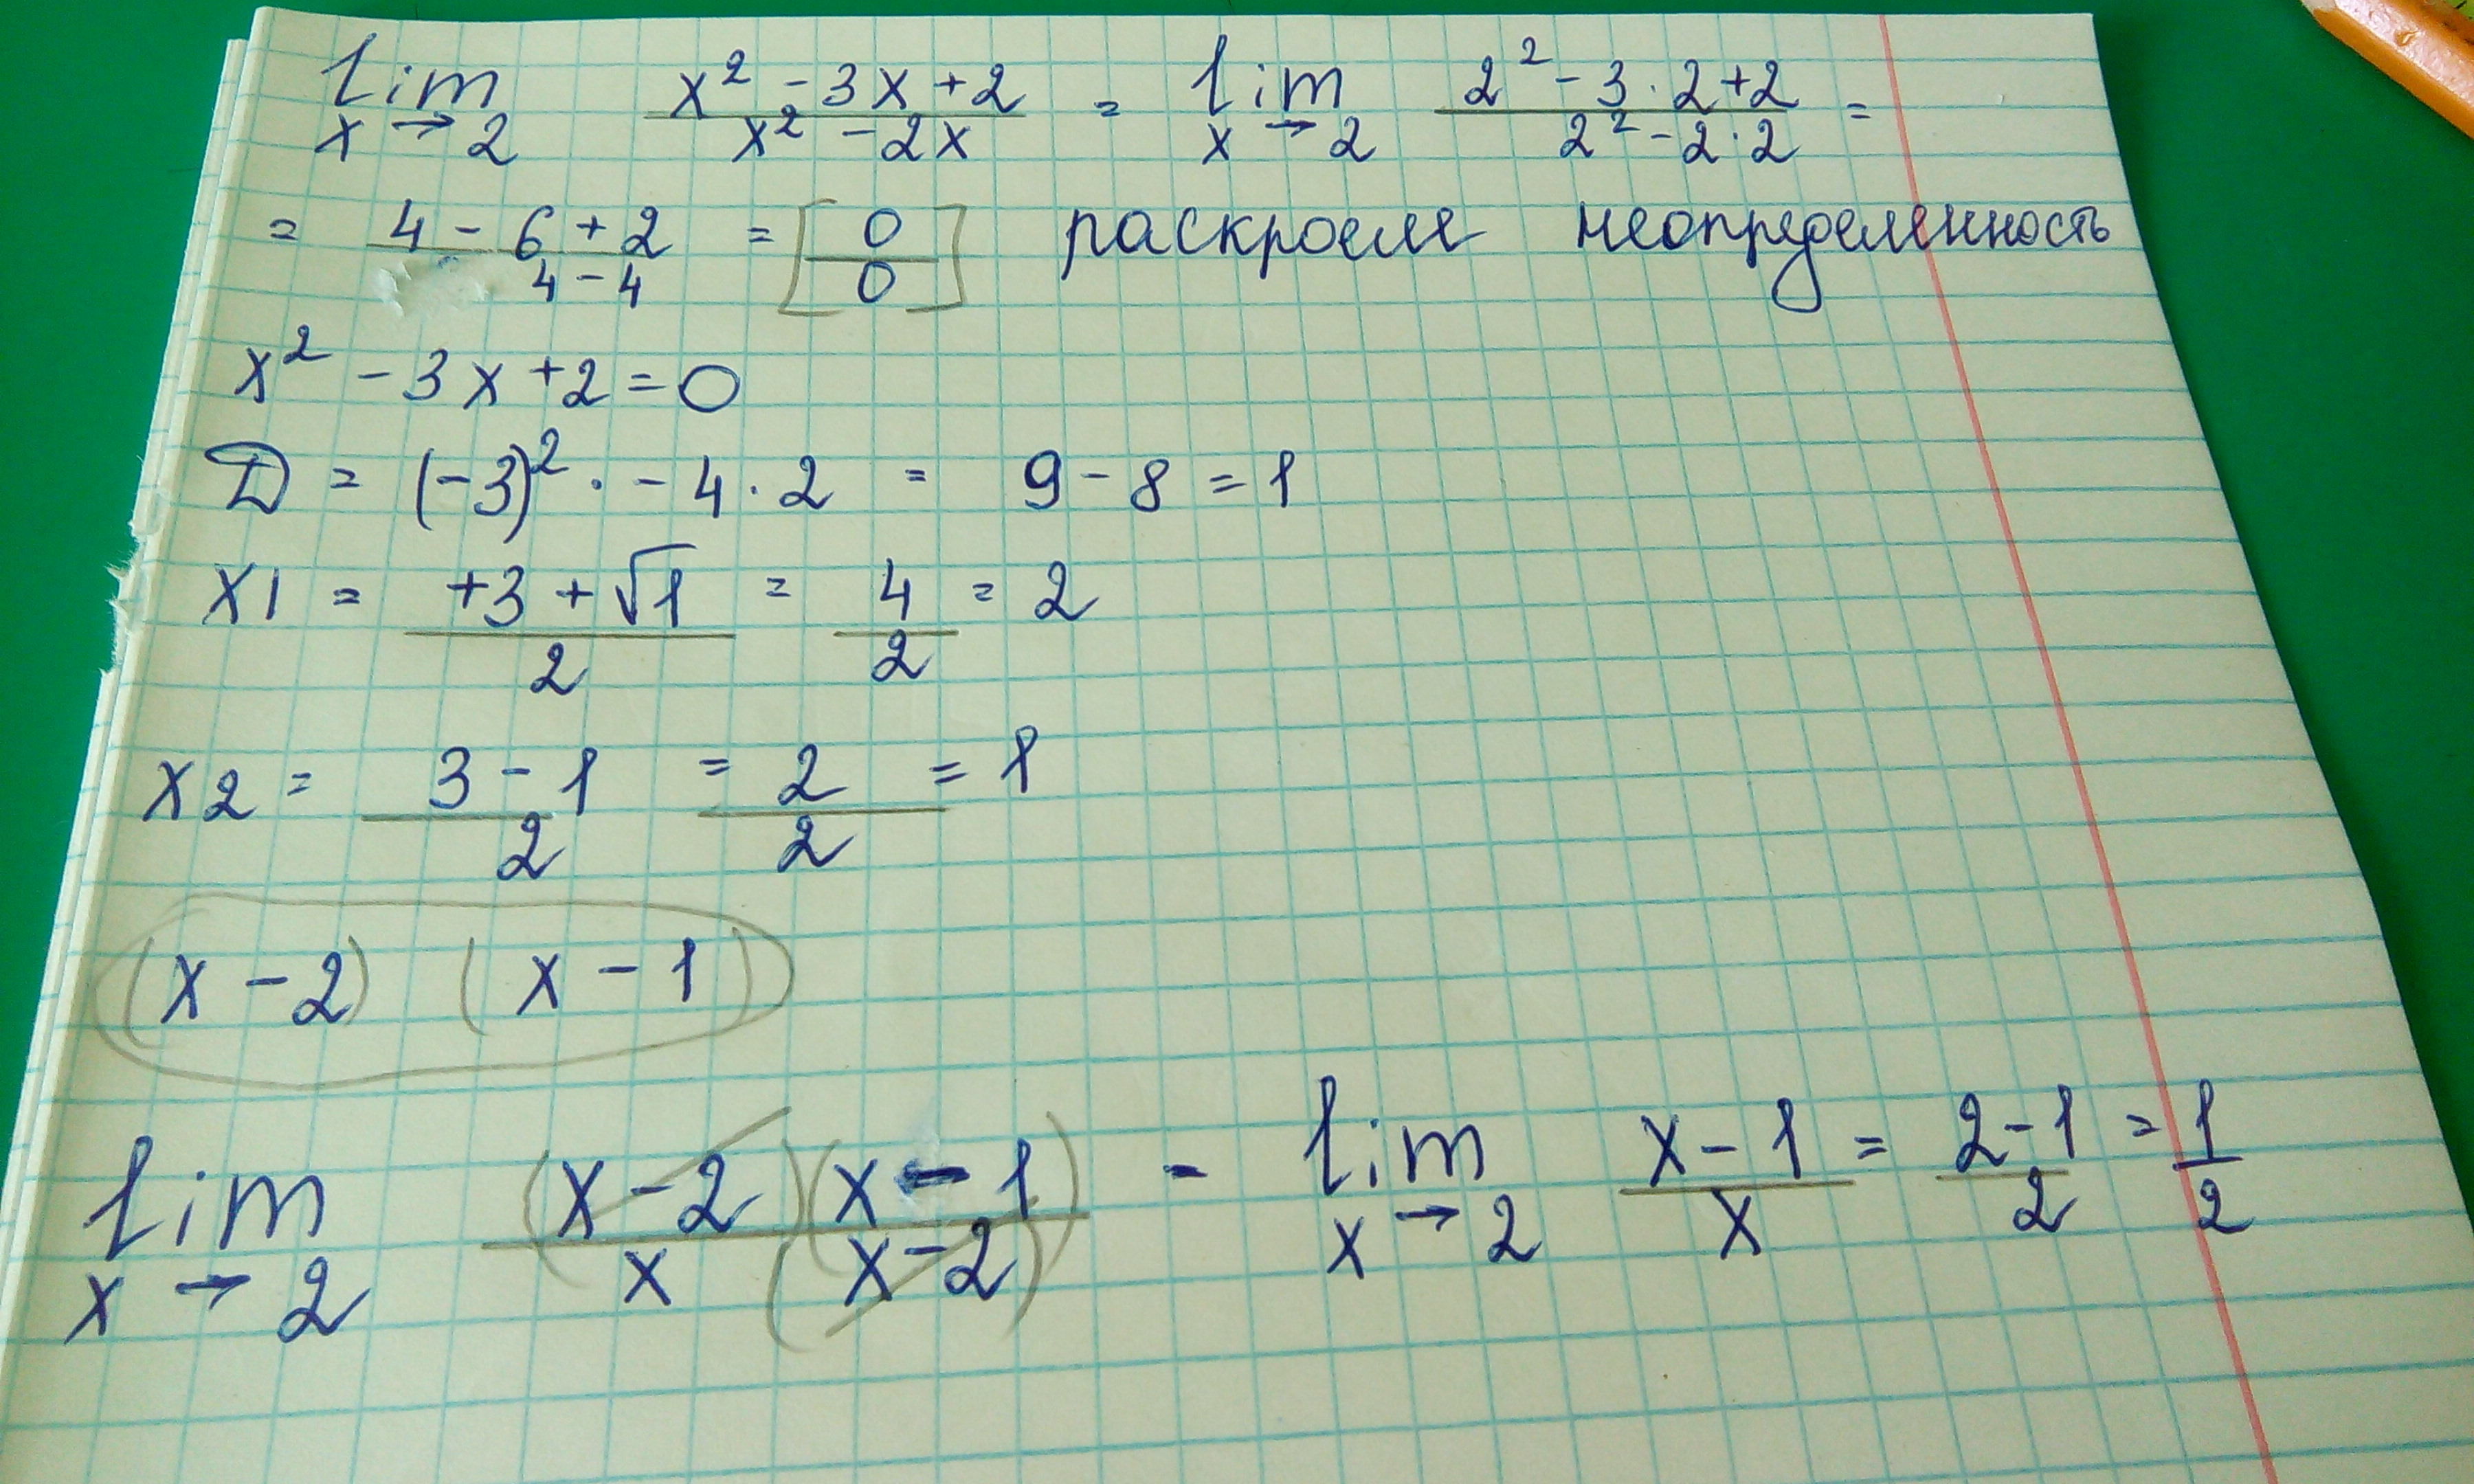 lim x→2 (x² - 3x + 2)/(x² - 2x) = lim x→2 (2² - 3·2+2)/(2² - 2·2) =
= (4 - 6 + 2)/(4 - 4) = [0/0] раскроем неопределенность
x² - 3x + 2 = 0
D = (-3)² · - 4 · 2 = 9 - 8 = 1
x1 = (+3 + √1)/2 = 4/2 = 2
x2 = (3 - 1)/2 = 2/2 = 1
(x - 2) (x - 1)
lim x→2 (x - 2)(x - 1)/x(x - 2) - lim x→2 (x - 1)/x = (2 - 1)/2 = 1/2